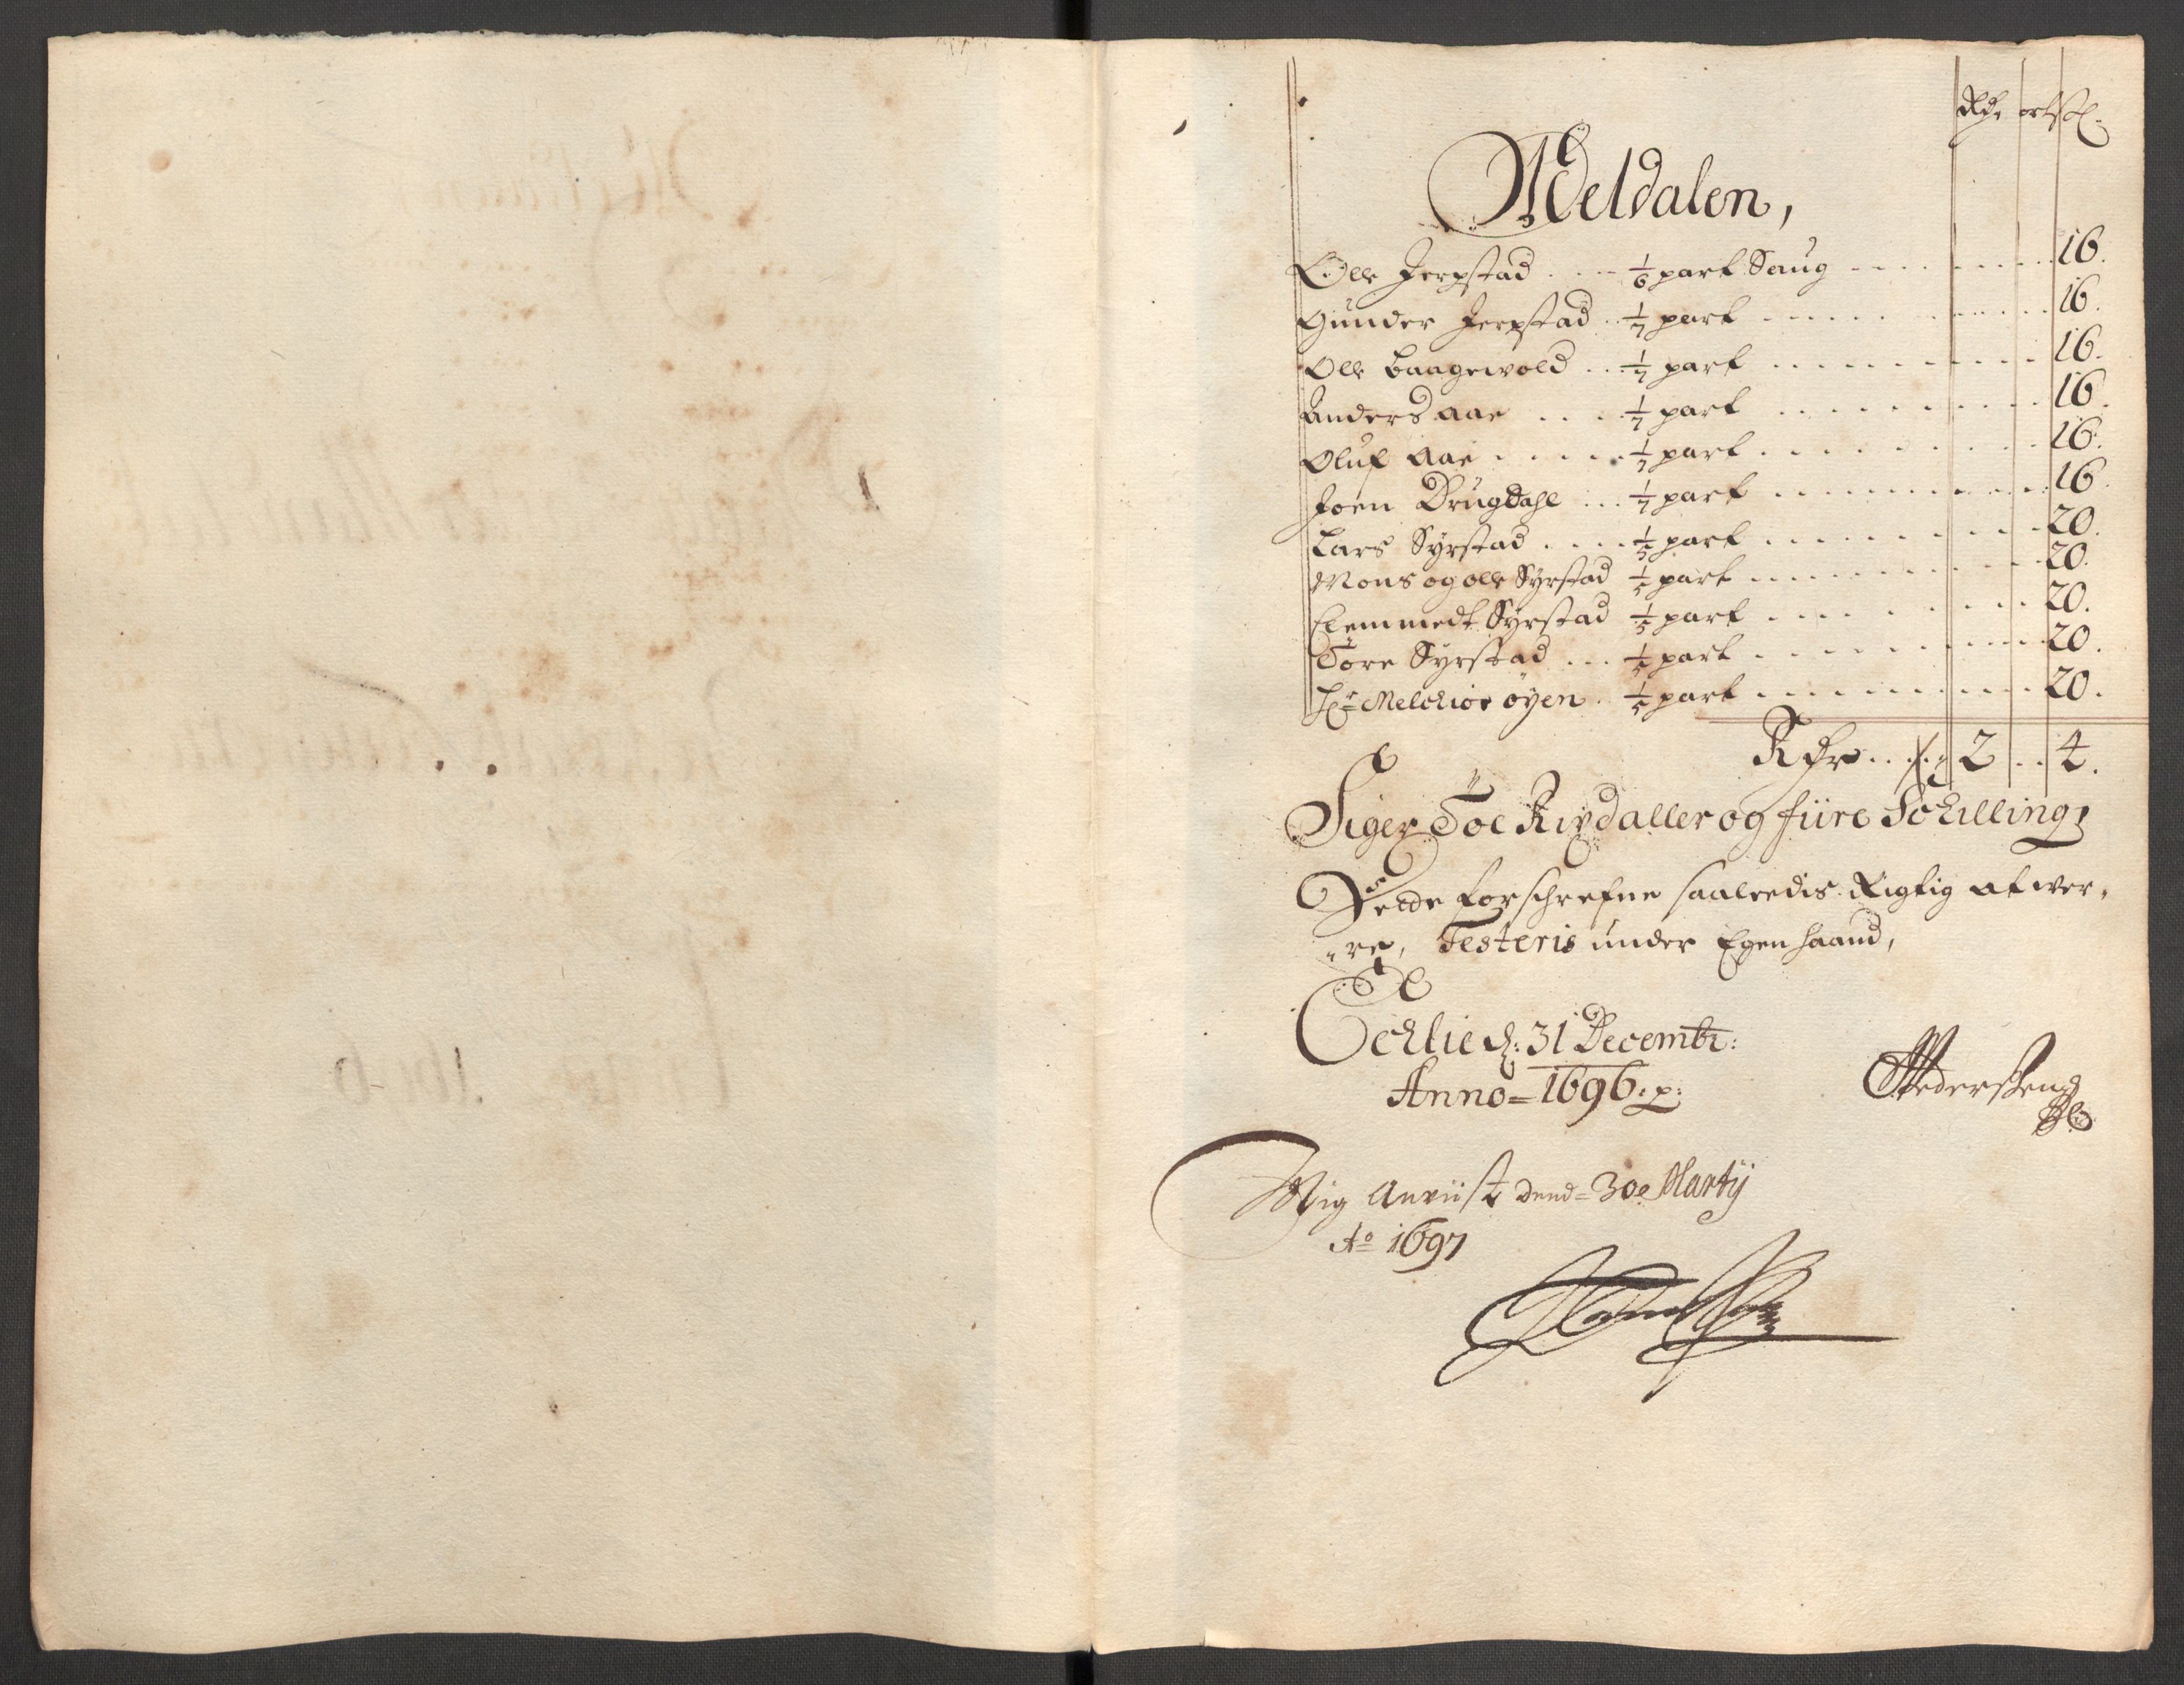 Rdr ort sk.
Meldalen,
Olle Jerpstad .... 1/6 part Saug ........ 16.
Gunder Jerpstad .. 1/7 part ........ 16.
Olle Baagewold ... 1/7 part ........ 16.
Anders Aae .... 1/7 part ........ 16.
Oluf Aae ..... 1/7 part ........ 16.
Joen Drugdahl ... 1/7 part ........ 16.
Lars Syrstad .... 1/5 part ........ 20.
Mons og olle Syrstad 1/5 part ........ 20.
Clemmedt Syrstad 1/5 part ........ 20.
Töre Syrstad ... 1/5 part ........ 20.
Hr Melchior öyen . 1/5 part ........ 20.
Rdr .... 2 .. 4.
Siger Toe Rixdaller og fiire Schilling,
Dette forschrefne saaleedis Rigtig at wer„
„re, Testeris under Egen haand,
Echlie d: 31 Decembr:
Anno = 1696. p:
Pederßen
Mig Anviist dend = 30e Martij
Ao 1697